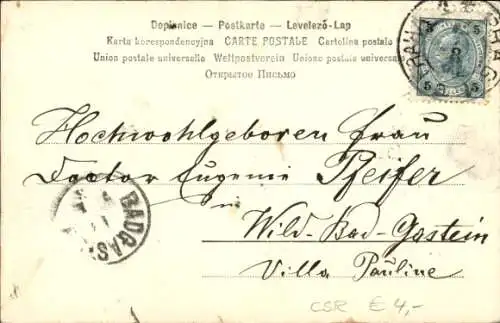 Dopisnice — Postkarte — Levelező-Lap
Karta korespondencyjna CARTE POSTALE Cartolina postale
Union postale universelle Weltpostverein Unione postale universale
Открытое Письмо
5 5
5 5
Hochwohlgeboren Frau
Doctor Eugenie Pfeifer
in
BADGAS
Wild-Bad-Gastein
Villa Pauline
CSR € 4,-